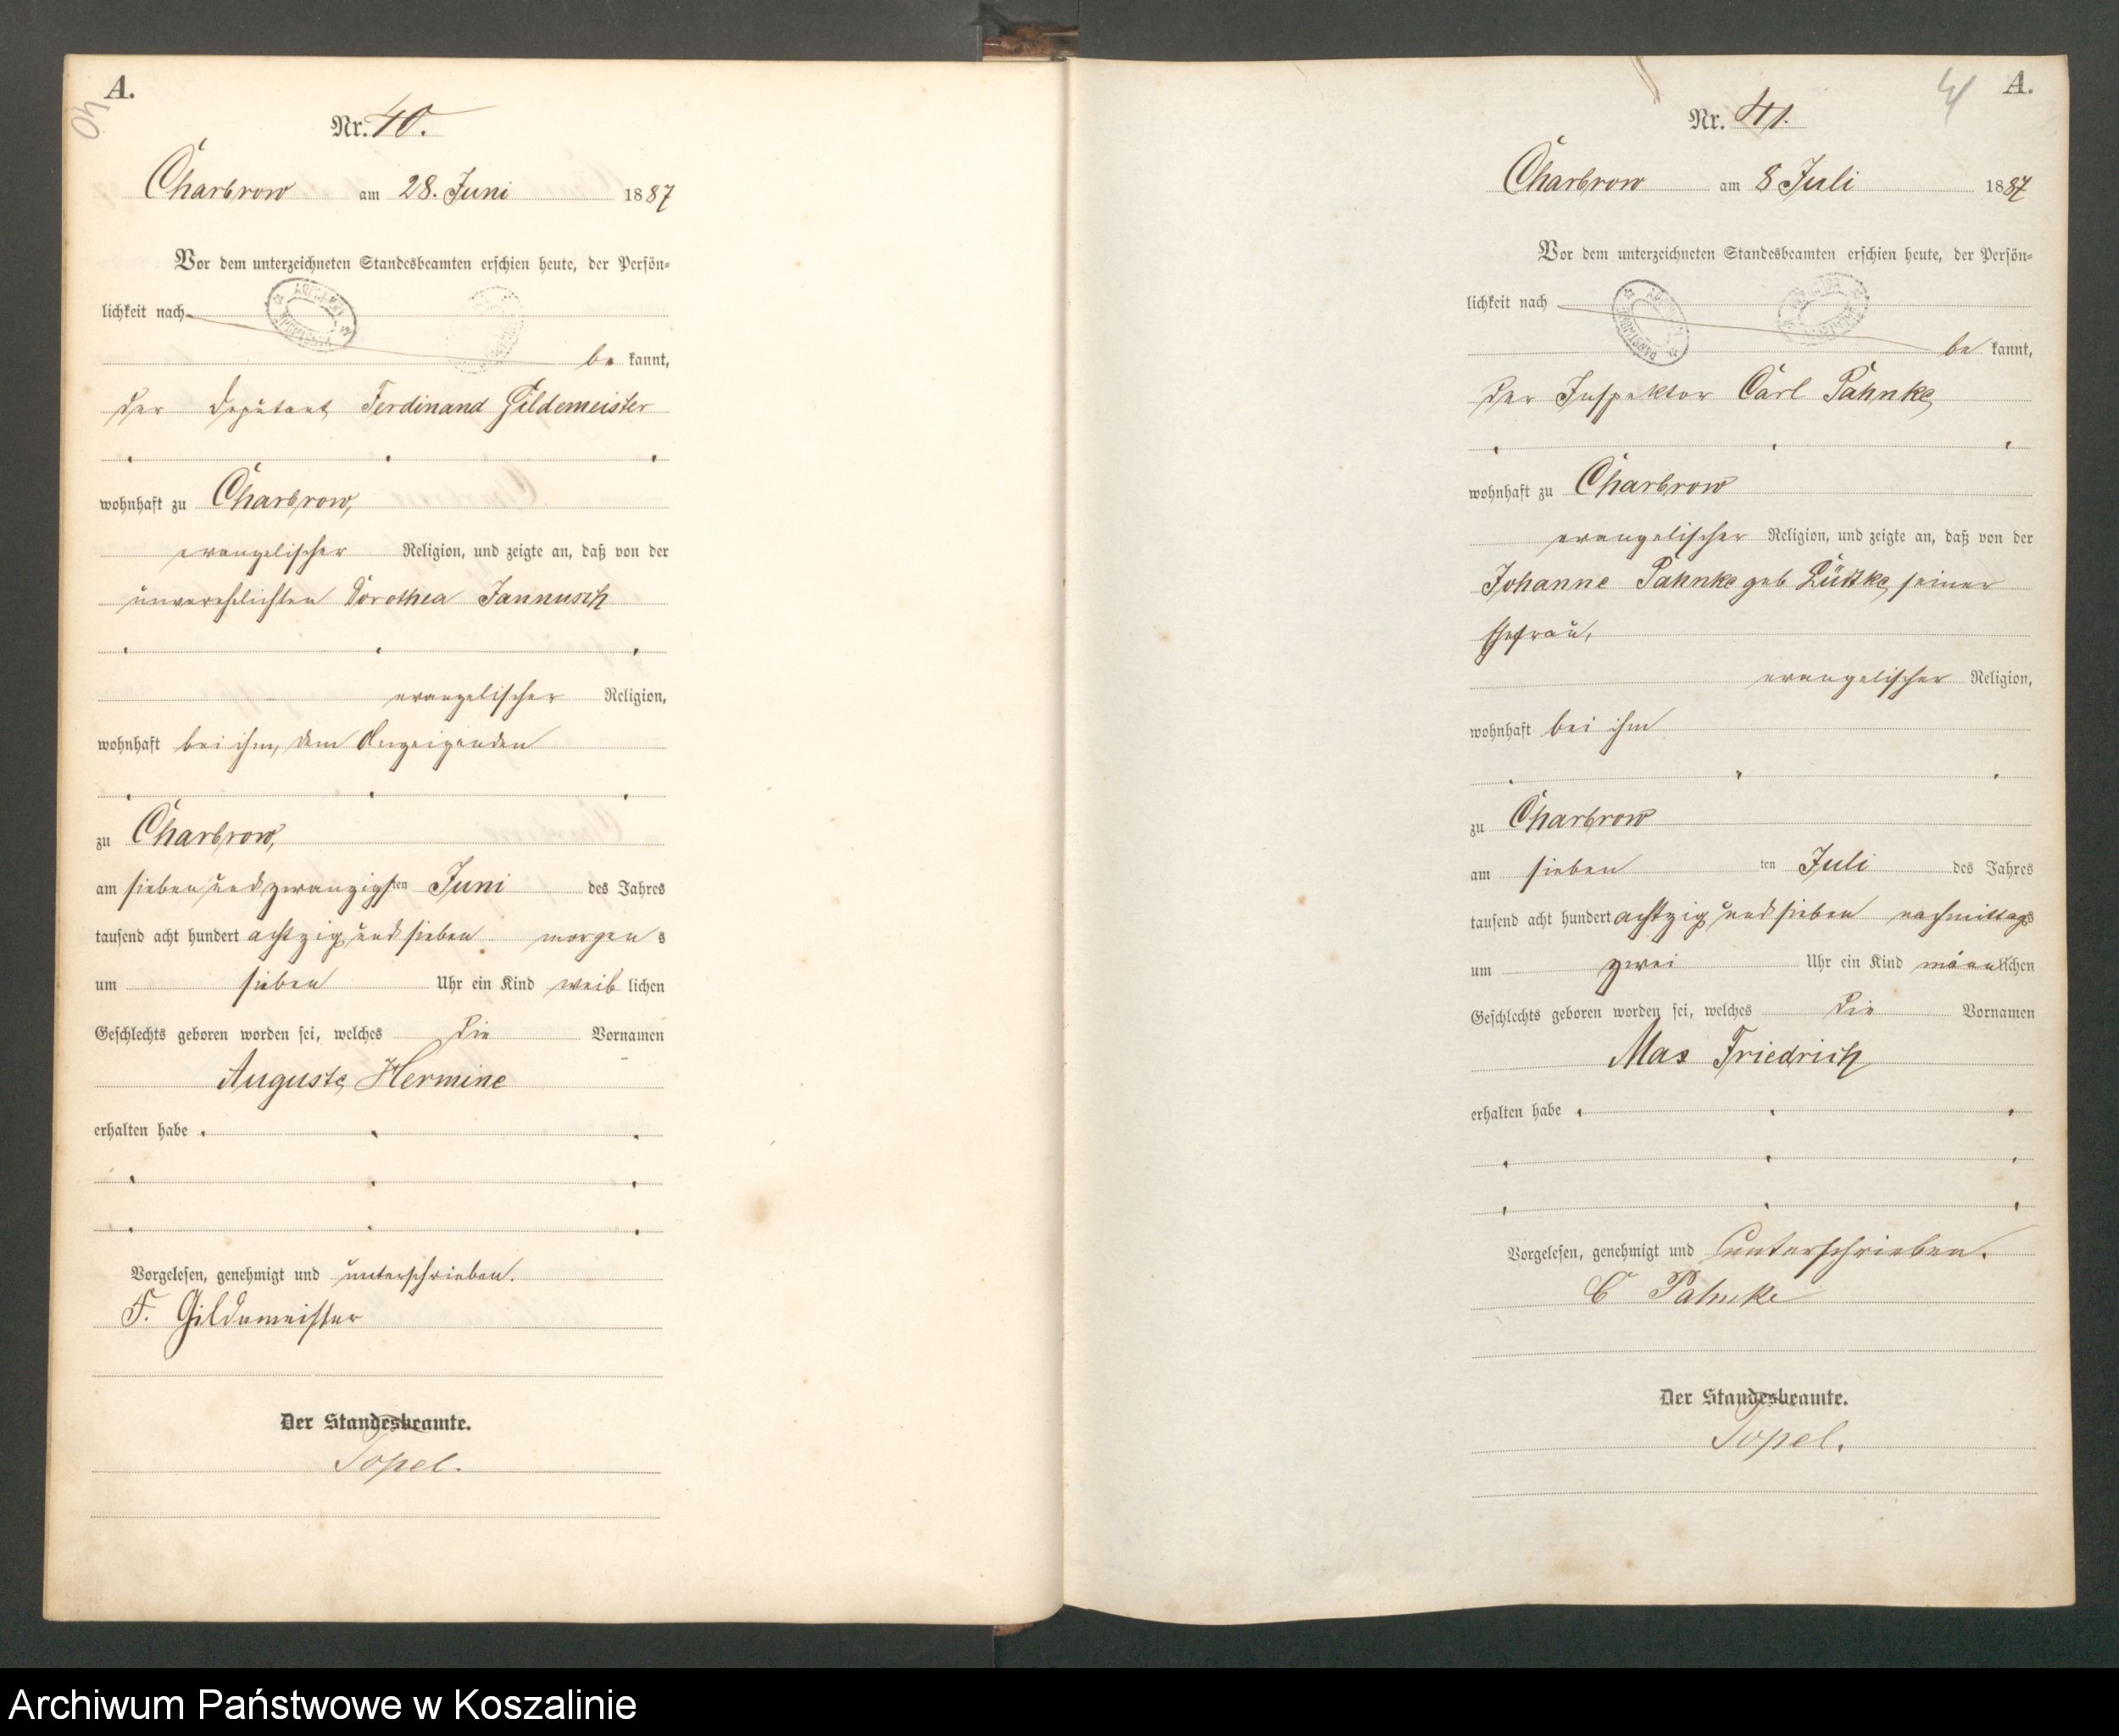 A.
40
Nr. 40.
Charbrow am 28. Juni 1887
Vor dem unterzeichneten Standesbeamten erschien heute, der Persön-
lichkeit nach
be kannt,
der Deputant Ferdinand Gildemeister
wohnhaft zu Charbrow,
evangelischer Religion, und zeigte an, daß von der
unverehelichten Dorothea Jannusch
evangelischer Religion,
wohnhaft bei ihm, dem Anzeigenden
zu Charbrow,
am sieben und zwanzigsten Juni des Jahres
tausend acht hundert achtzig und sieben morgens
um sieben Uhr ein Kind weiblichen
Geschlechts geboren worden sei, welches die Vornamen
Auguste Hermine
erhalten habe
Vorgelesen, genehmigt und unterschrieben.
F. Gildemeister
Der Standesbeamte.
Topel.
A.
41
Nr. 41.
Charbrow am 8 Juli 1887
Vor dem unterzeichneten Standesbeamten erschien heute, der Persön-
lichkeit nach
be kannt,
der Inspektor Carl Pahnke
wohnhaft zu Charbrow
evangelischer Religion, und zeigte an, daß von der
Johanne Pahnke geb Lüttke, seiner
Ehefrau,
evangelischer Religion,
wohnhaft bei ihm
zu Charbrow
am sieben ten Juli des Jahres
tausend acht hundert achtzig und sieben nachmittags
um zwei Uhr ein Kind männlichen
Geschlechts geboren worden sei, welches die Vornamen
Max Friedrich
erhalten habe
Vorgelesen, genehmigt und unterschrieben.
C Pahnke
Der Standesbeamte.
Topel.
Archiwum Państwowe w Koszalinie